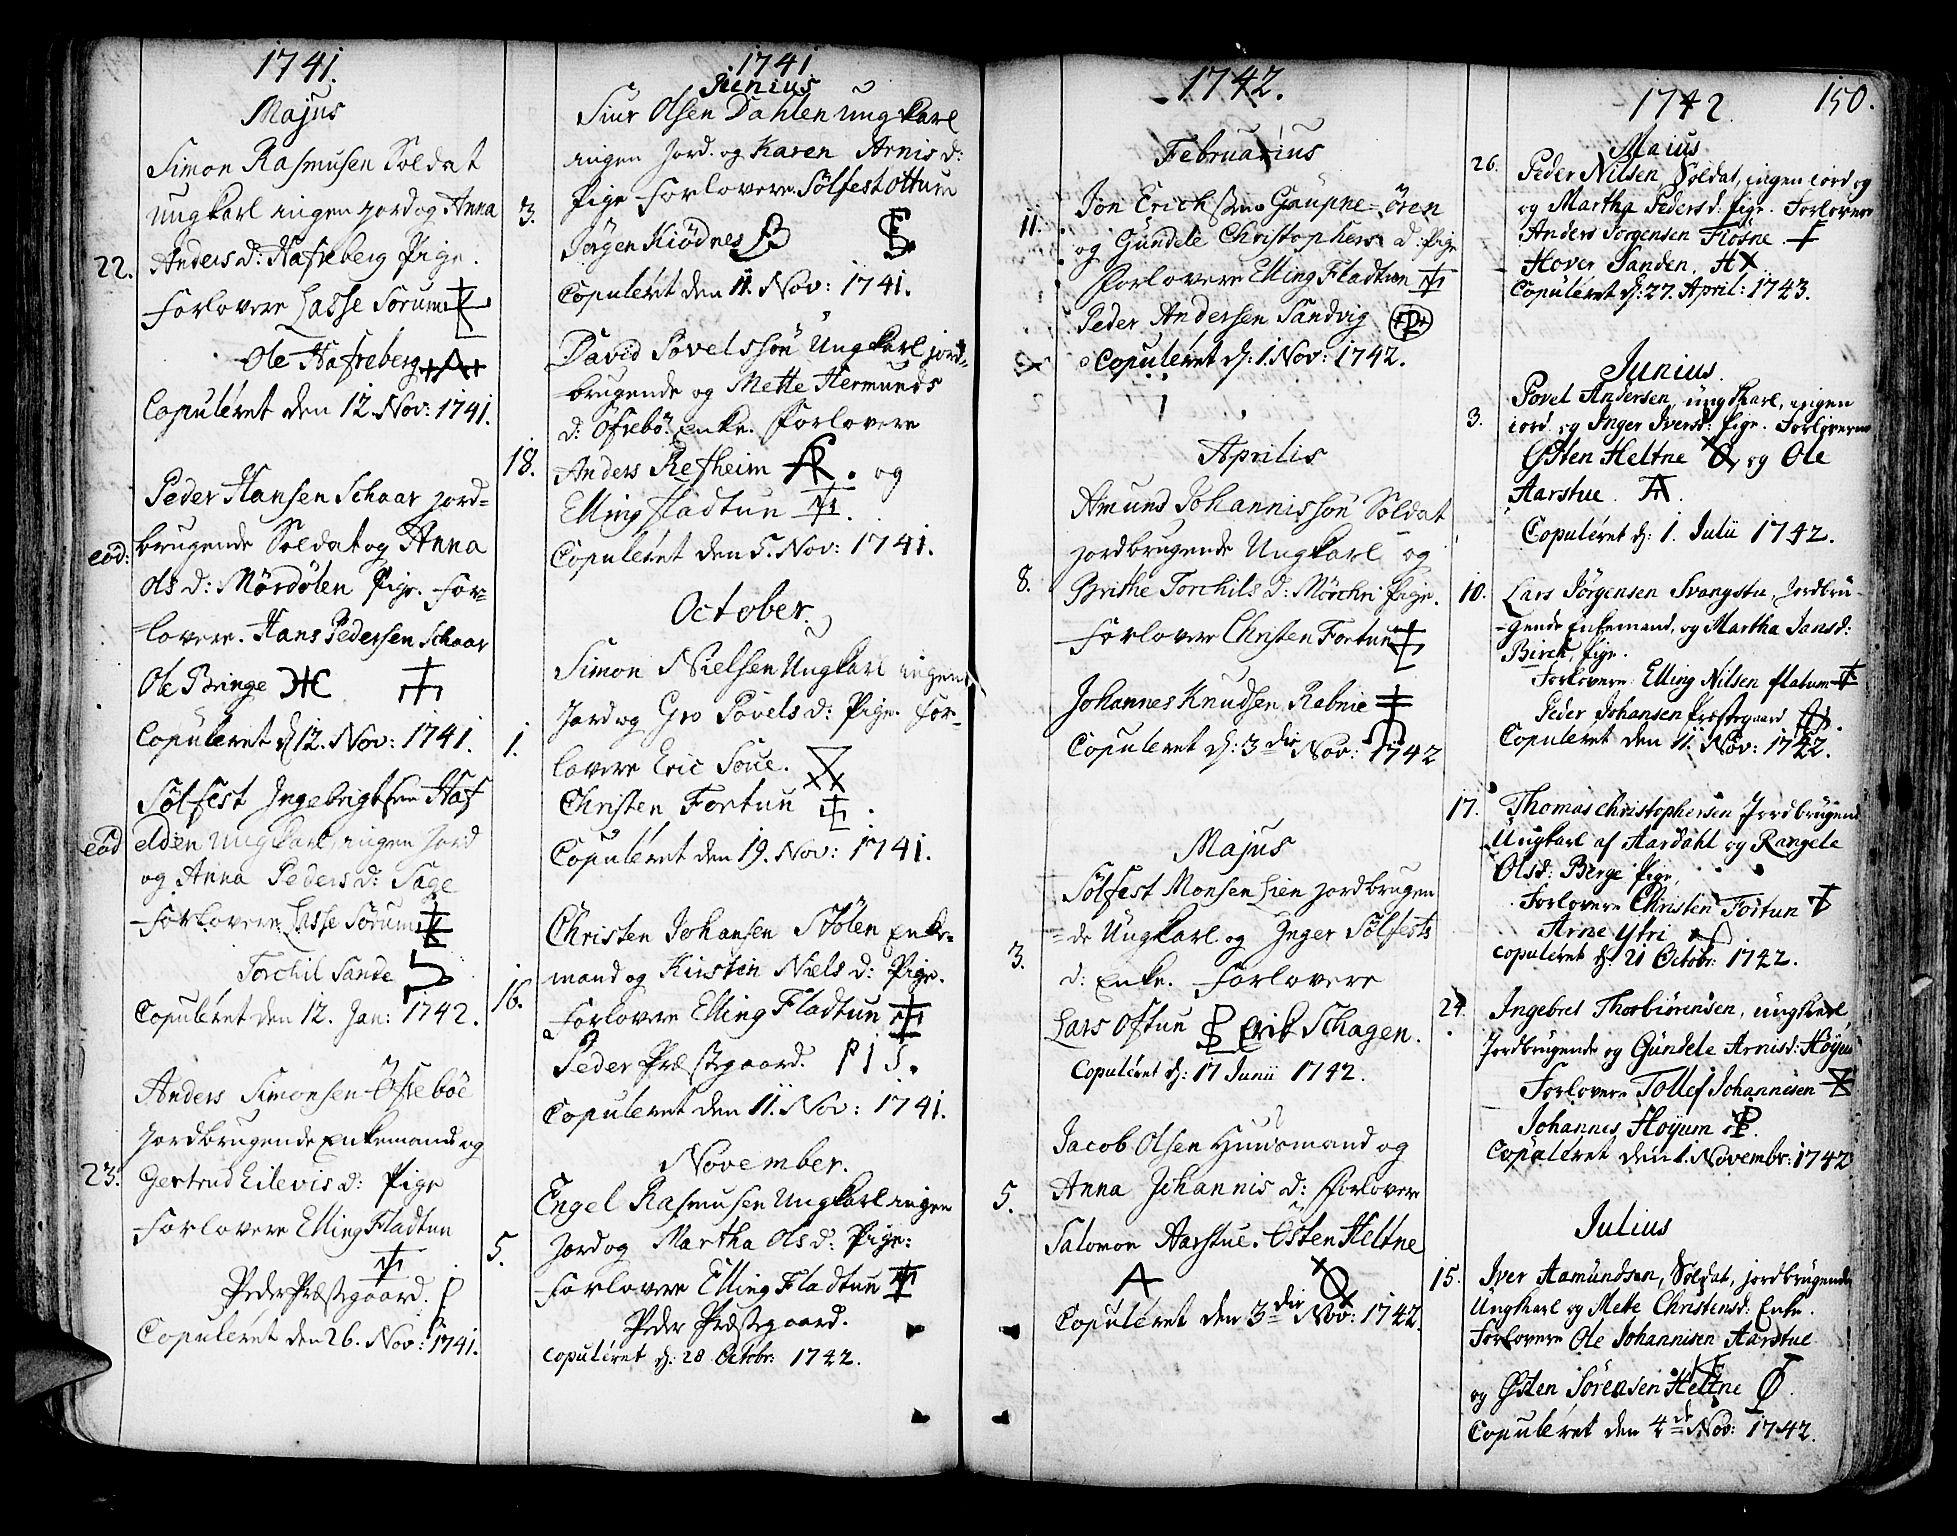 1741.
Majus
Simon Rasmusen Soldat
Ungkarl ingen jord og Anna
22. Anders d: Hafreberg Pige.
Forlovere Lasse Sorum
Ole Hafreberg
Copuleret den 12. Nov: 1741.
Peder Hansen Schaar jord-
eod: brugende Soldat og Anna
Ols d: Mördölen Pige. For-
lovere. Hans Pedersen Schaar
Ole Bringe
Copuleret d. 12. Nov: 1741.
Sölfest Ingebrigtsen Haf
eod elden Ungkarl, ingen jord
og Anna Peders d: Sage
Forlovere Lasse Sorum
Torchil Sande
Copuleret den 12. Jan: 1742.
Anders Simonsen Öfreböe
Jordbrugende Enkemand og
23. Gertrud Eilevis d: Pige
Forlovere Elling Fladtun
Peder Præstegaard. P
Copuleret den 26. Nov: 1741.
1741
Junius
Siur Olsen Dahlen ungkarl
ingen jord. og Karen Arnis d:
3. Pige Forlovere Sölfest Ottum
Jörgen Kiödnes
Copuleret den 11. Nov: 1741.
David Povelssön Ungkarl jord-
brugende og Mette Hermunds
d: Öfrebö Enke. Forlovere
18. Anders Refheim og
Elling Fladtun
Copuleret den 5. Nov: 1741.
October.
Simon Nielsen Ungkarl ingen
jord og Gro Povels d: Pige. For-
1. lovere Eric Soue.
Christen Fortun
Copuleret den 19. Nov: 1741.
Christen Johansen Stölen Enke-
mand og Kirsten Niels d: Pige.
16. Forlovere Elling Fladtun
Peder Præstgaard. P I S.
Copuleret den 11. Nov: 1741.
November.
Engel Rasmusen Ungkarl ingen
5. jord og Martha Ols d: Pige:
Forlovere Elling Fladtun
Peder Præstegaard.
Copuleret d: 28 Octobr: 1742.
1742.
Februarius
Jon Erichssøn Gaupne-ören
11. og Gundele Christophers d: Pige
Forlovere Elling Fladtun
Peder Andersen Sandvig
Copuleret d: 1. Nov: 1742.
Aprilis
Amund Johannissön Soldat
jordbrugende Ungkarl og
8. Brithe Torchils d: Mörchri Pige.
Forlovere Christen Fortun
Johannes Knudsen Rabnie
Copuleret d: 3die Nov: 1742
Majus
Sölfest Monsen Lien jordbrugen
=de Ungkarl og Inger Sölfests
3. d: Enke. Forlovere
Lars Oftun Erik Schagen.
Copuleret d: 17 Junii 1742.
Jacob Olsen Huusmand og
5. Anna Johannis d: Forlovere
Salomon Aarstue. Östen Heltne
A
Copuleret den 3die Nov: 1742.
150.
1742.
Maius
26. Peder Nilsen Soldat, ingen iord og
og Martha Peders d: Pige. Forlovere
Anders Jorgensen Fiosne
Hover Sanden. H
Copuleret d: 27. April: 1743.
Junius.
Povel Andersen, ungkarl, ingen
3. iord og Inger Ivers d: Pige. Forlovere
Östen Heltne og Ole
Aarstue. A.
Copuleret d: 1. Julii 1742.
10. Lars Jörgensen Svangstu, Jordbru-
-gende Enkemand, og Martha Jans d:
Birch, Pige.
Forlovere Elling Nilsen flatum
Peder Johansen Præstegaard
Copuleret den 11. Nov: 1742.
17. Thomas Christophersen Jordbrugend
Ungkarl af Aardahl og Rangele
Olsd: Berge Pige
Forlovere Christen Fortun
Arne Ytri
Copuleret d: 21 Octobr: 1742.
24 Ingebret Thorbiörensen, ungkarl,
Jordbrugende og Gundele Arnisd: Höyum
Forlovere Tollef Johannesen
Johannes Höyum
Copuleret den 1. Novembr: 1742
Julius
15. Iver Aamundsen, Soldat, jordbrugende
Ungkarl og Mette Christensd: Enke.
Forlovere Ole Johannisen Aarstue
og Östen Sörensen Heltne
Copuleret den 4de Nov: 1742.